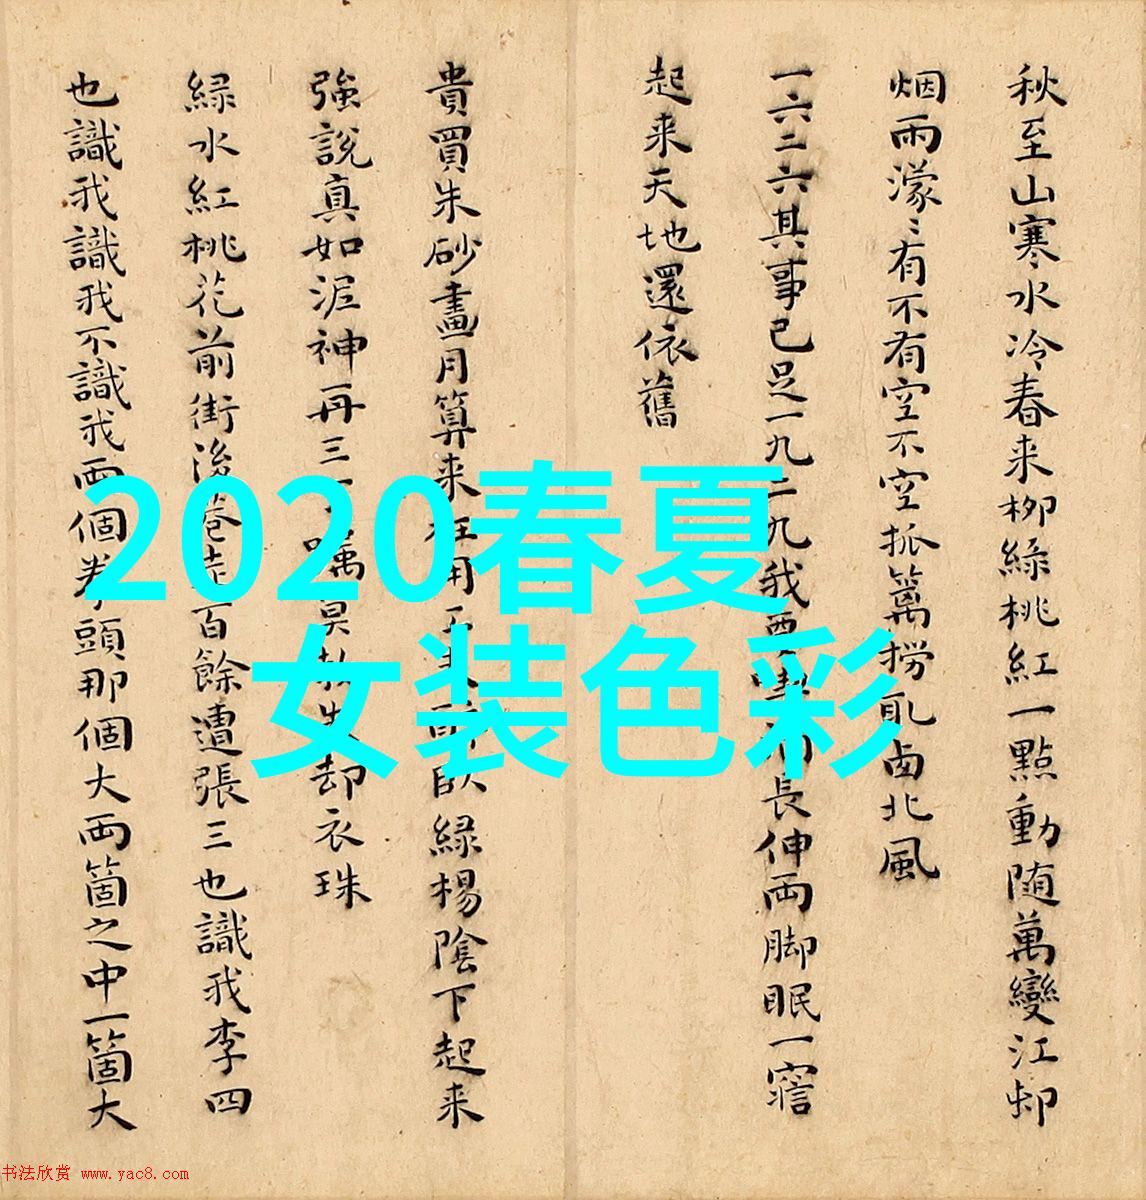 秋至山寒水冷春来柳緑桃紅一點動随萬變江邨
烟雨濛〻有不有空不空抓篱捞取卤北風
一六二六其事已足一九二九我要長伸两脚眠一寤
起来天地還依舊
貴買朱砂畫月算来枉用卧緑楊陰下起来
強說真如泥神再三嘱莫却衣珠
緑水紅桃花前街後巷走百餘遭張三也識我李四
也識我識我不識我两個拳頭那個大两箇之中一箇大
2020春夏
女装色彩
书法欣赏 www.yac8.com